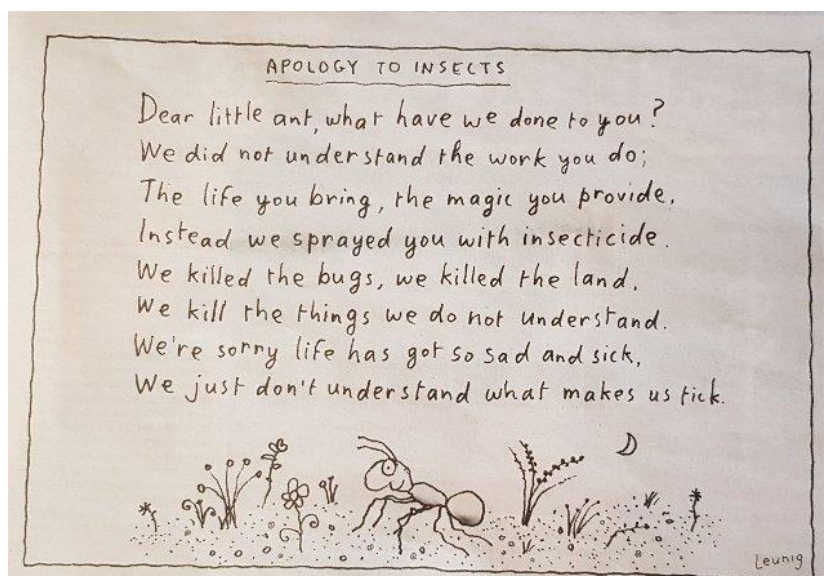 APOLOGY TO INSECTS
Dear little ant, what have we done to you?
We did not understand the work you do;
The life you bring, the magic you provide,
Instead we sprayed you with insecticide.
We killed the bugs, we killed the land,
We kill the things we do not understand.
We're sorry life has got so sad and sick,
We just don't understand what makes us tick.
Leunig